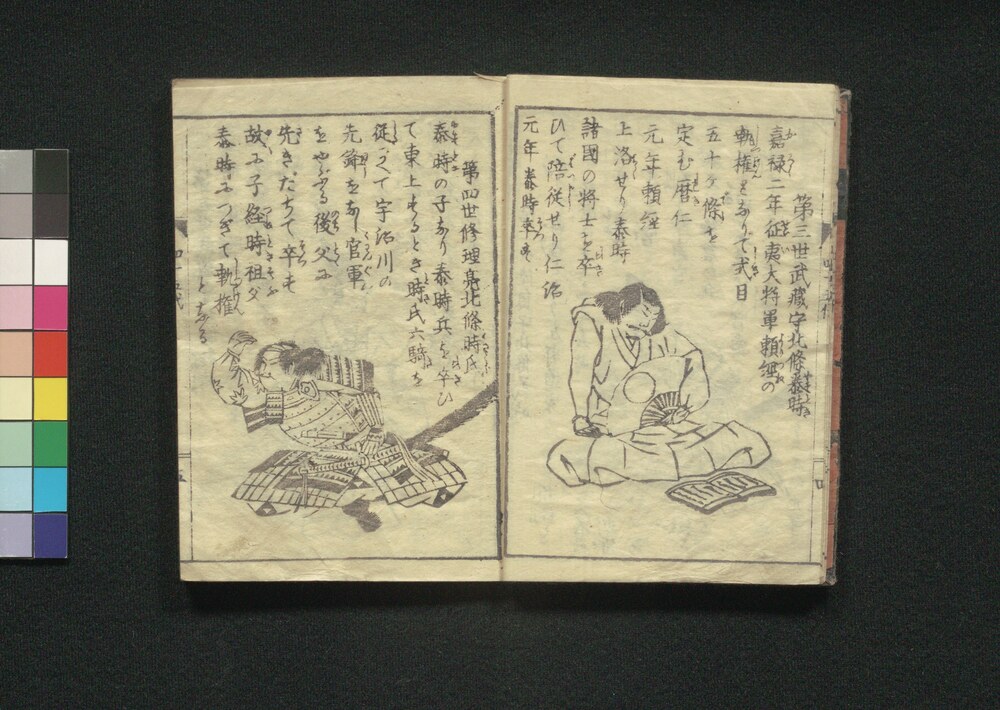 第三世武蔵守北條泰時
嘉禄二年征夷大将軍頼経の
執権となりて式目
五十ヶ條を
定む暦仁
元年頼経
上洛せり泰時
諸國の将士を卒
ひて陪従せり仁治
元年泰時卒す
第四世修理亮北條時氏
泰時の子なり泰時兵を卒ひ
て東上するとき時氏六騎を
従へて宇治川の
先鋒をなし官軍
をやぶる後父に
先きだちて卒す
故に子経時祖父
泰時につぎて執權
となる